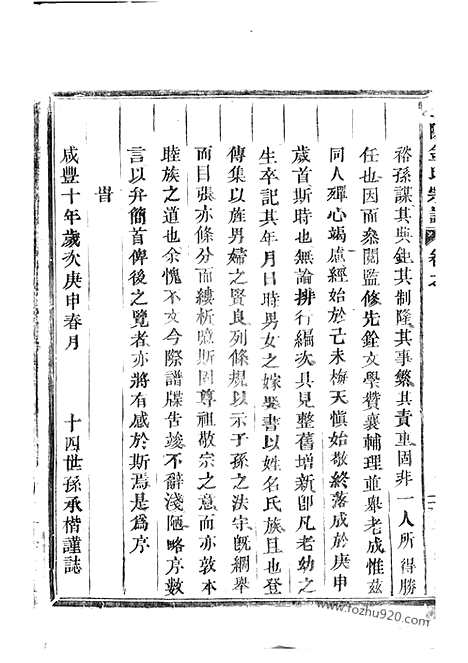 裕孫謀其典鉅其制隆其事繁其責重固非一人所得勝
任也因而叅閱監修先銓文學贊襄輔理並舉老成惟兹
同人殫心竭慮經始於己未梅天慎始敬終落成於庚申
歲首斯時也無論排行編次具見整舊增新卽凡老幼之
生卒記其年月日時男女之嫁娶書以姓名氏族且也登
傳集以旌男婦之賢良列條規以示子孫之法守旣綱舉
而目張亦條分而縷析噫斯固尊祖敬宗之意而亦敦本
睦族之道也余愧不文今際譜牒告竣不辭淺陋略序數
言以弁簡首俾後之覽者亦將有感於斯焉是爲序
旹
咸豐十年歲次庚申春月 十四世孫承楷謹誌
氏宗譜 卷之
www.fozhu920.com